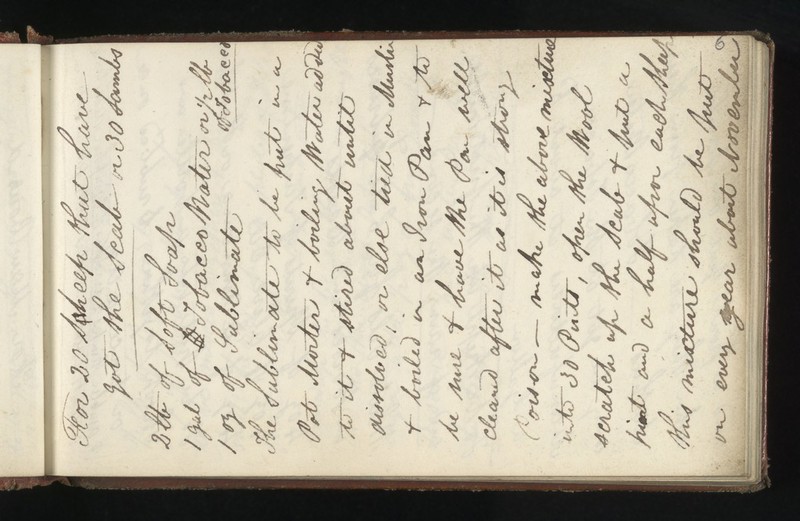 For 20 Sheep that have
got the Scab or 30 Lambs
2 lb of Soft Soap
1 gal of Tobacco Water or ½ lb
of Tobacco
1 oz of Sublimate
The Sublimate to be put in a
Pot Morter & boiling Water added
to it & stired about until
dissolved, or else tied in Muslin
& boiled in an Iron Pan & to
be sure & have the Pan well
cleand after it as it is strong
Poison — make the above mixture
into 30 Pints, open the Wool
scratch up the Scab & put a
pint and a half upon each Sheep
this mixture should be put
on every year about November